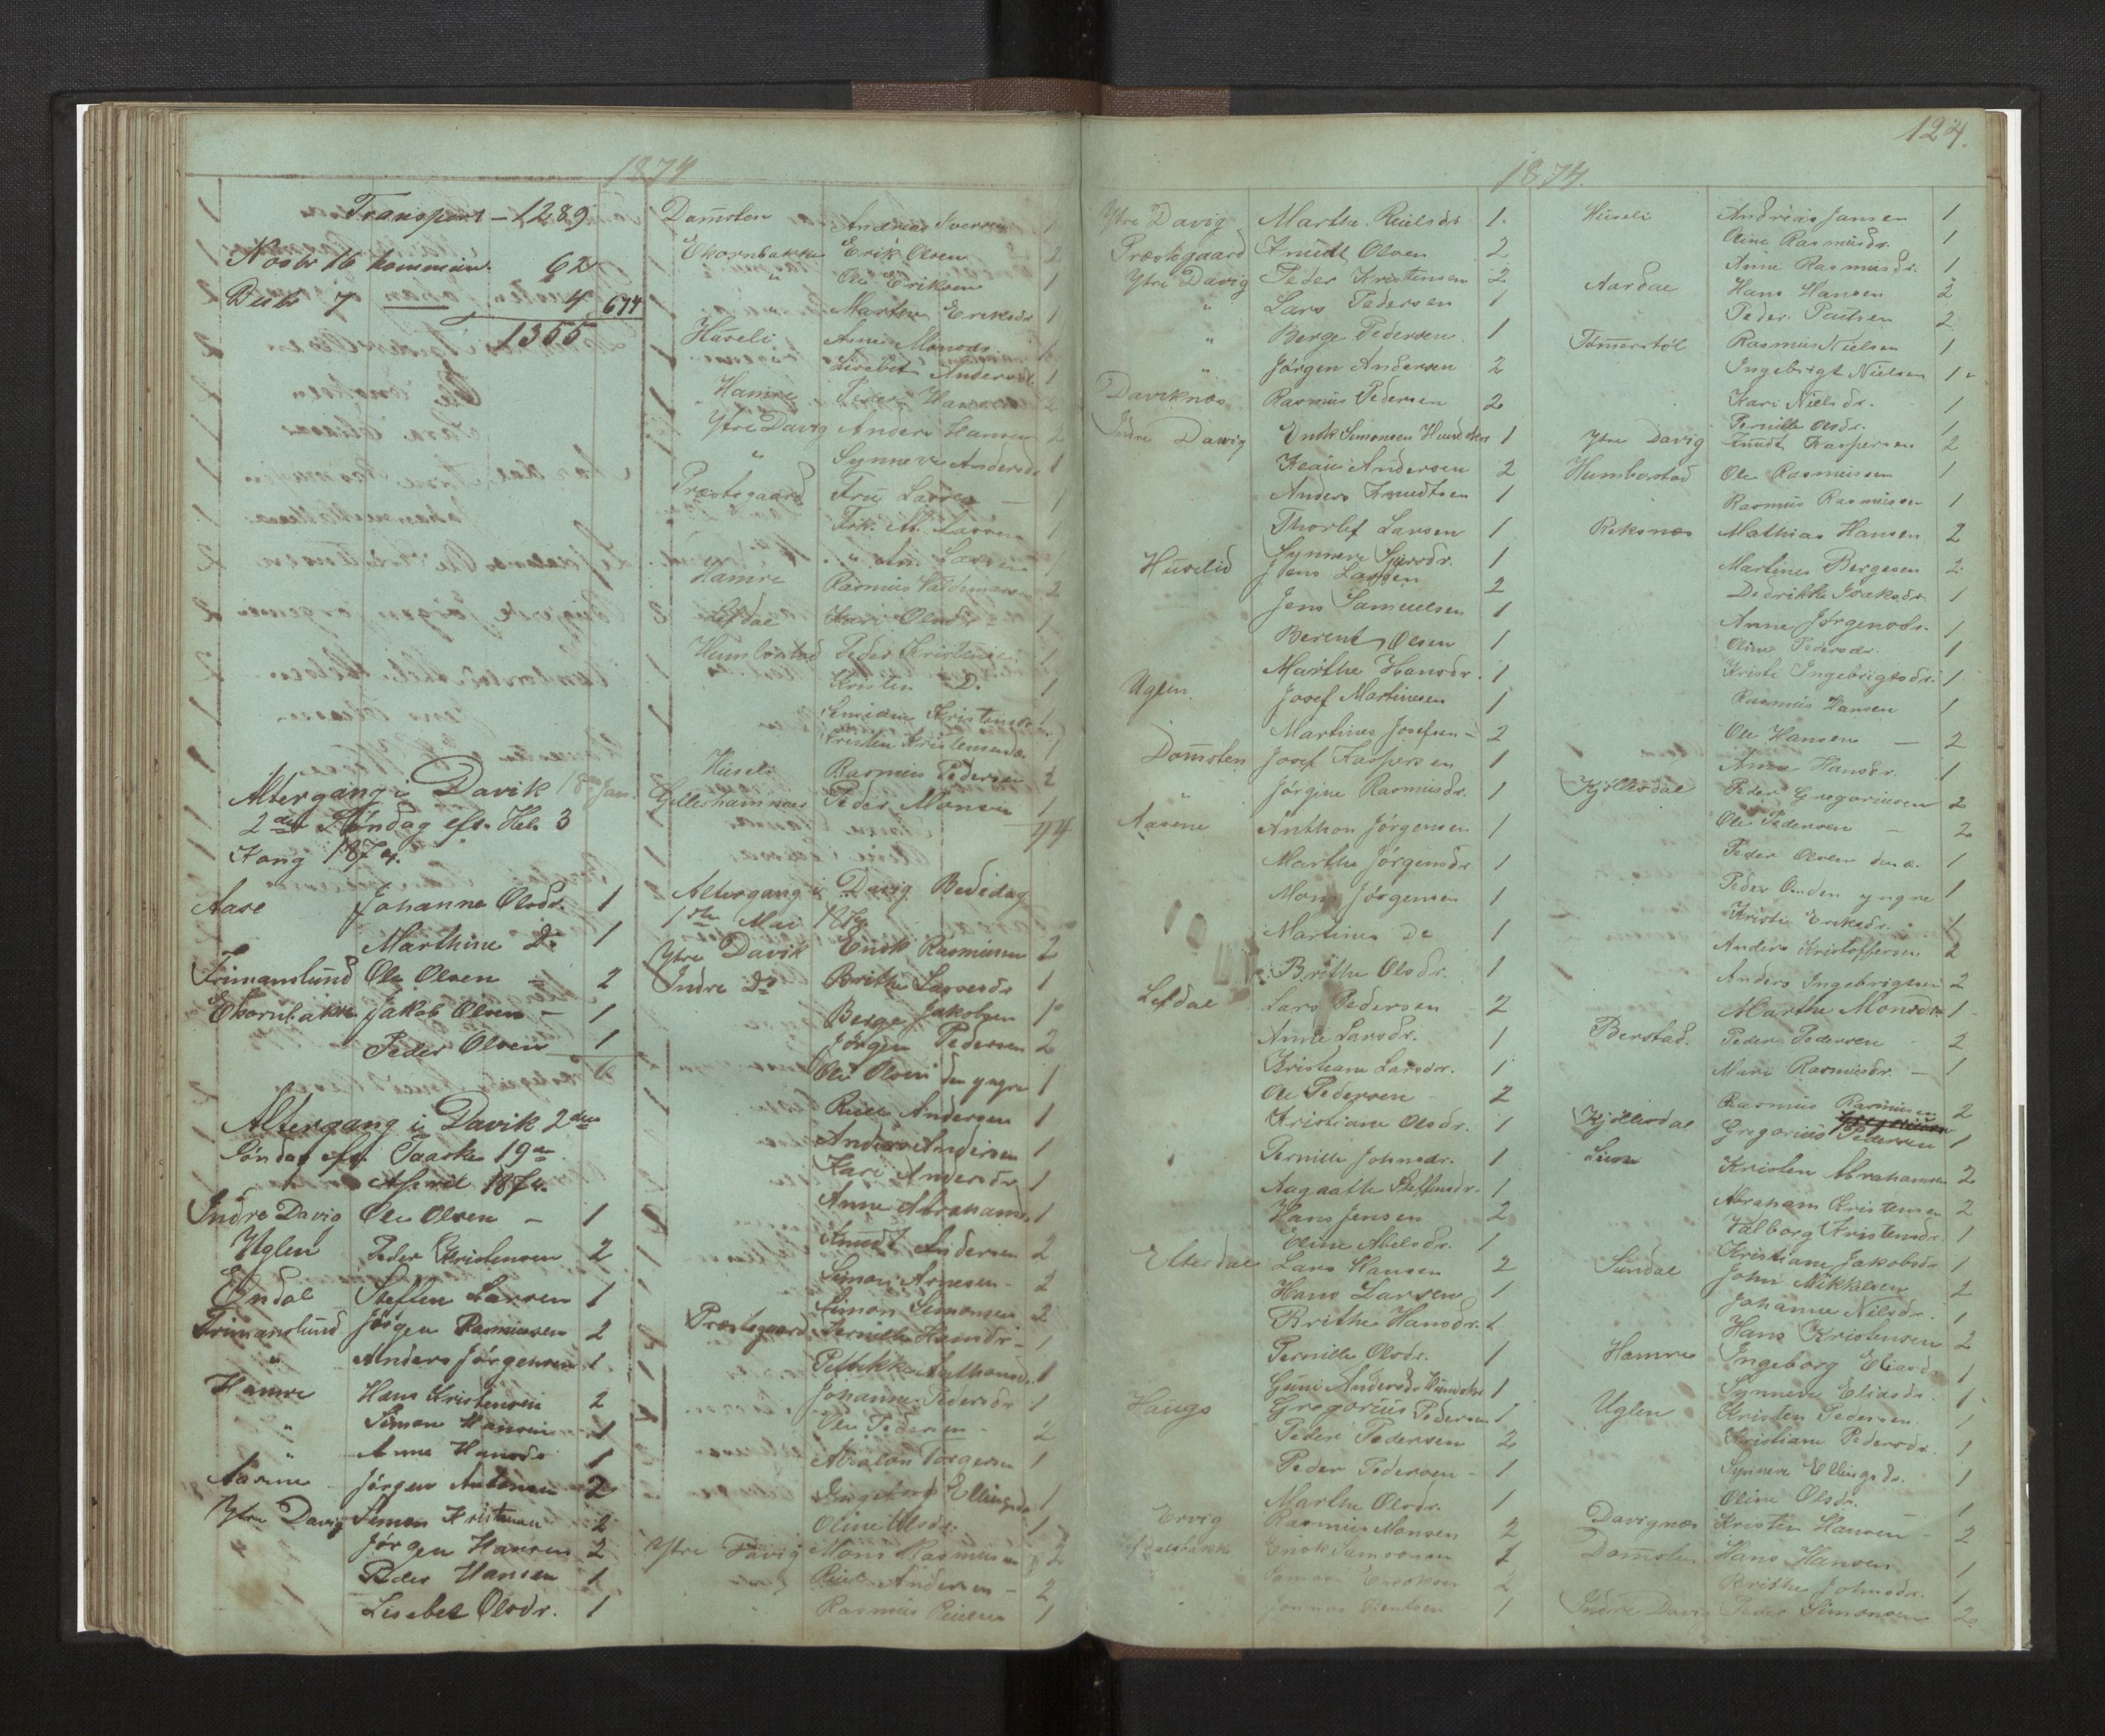 1874
Transport - 1289
62
7 4 674
1355
Altergang i Davik 18de Jan.
2den Søndag eft. Hel. 3
Kong 1874.
Aase Johanne Olsdr. 1
Marthine Do 1
Frimanslund Ole Olsen - 2
Ekornbakke Jakob Olsen - 1
Peder Olsen 1
6
Altergang i Davik 2den
Søndag eft. Paaske 19de
April 1874.
Indre Davig Ole Olsen - 1
Uglen Peder Kristensen 2
Endal Steffen Larsen 1
Frimanslund Jørgen Rasmusen 2
" Anders Jørgensen 1
Hamre Hans Kristensen 2
" Simon Hansen 1
" Anne Hansdr 1
Aasene Jørgen Antonsen 2
Ytre Davig Simon Kristensen 2
Jørgen Hansen 2
Peder Hansen 1
Lisabet Olsdr. 1
Domsten Andreas Sversen 1
Ekornbakke Erik Olsen 2
" Ole Eriksen 1
Marthe Eriksdr 1
Huseli Anne Monsdr. 1
Lisabet Andersdr 1
Hamre Peder Hansen 2
Ytre Davig Anders Hansen 2
" Synneve Andersdr 1
Præstegaard Fru Lassen - 1
Frk. M. Lassen 1
Lassen 1
Hamre Rasmus Valdemarsen 2
Lefdal Kari Olsdr - 1
Humborstad Peder Kristensen 1
Kristen D. 1
Kristensdr 1
Kristen Kristensen 1
Huseli Rasmus Pedersen 2
Gilleshammer Peder Monsen 1
44
Altergang i Davig Bededag
1ste Mai 1874
Ytre Davik Enok Rasmusen 2
Indre Do Brithe Larsesdr 1
Berge Jakobsen 1
Jørgen Pedersen 2
Ole Olsen den yngre 1
Reiel Andersen 1
Anders Andersen 1
Kari Andersdr 1
Anne Abrahamsdr 1
Knudt Andersen 2
Simon Arnesen - 2
Simon Simonsen 2
Præstegaard Pernille Hansdr - 1
Anthonsdr. 1
Johanne Pedersdr 1
Ole Pedersen - 2
Absalon Torgersen 1
Ingeborg Ellingsdr 1
Oline Olsdr. 1
Ytre Davig Mons Rasmusen 2
Reiel Andersen - 2
Rasmus Reielsen 1
124.
1874.
Ytre Davig Marthe Reielsdr 1.
Præstegaard Knudt Olsen 2
Ytre Davig Peder Kristensen 2
" Lars Pedersen 1
" Berge Pedersen 1
" Jørgen Andersen 2
Daviknæs Rasmus Pedersen 2
Indre Davig Enok Simonsen 1
Andersen 2
Anders Knudtsen 1
Thorlef Larsen 1
Synneve 1
Huselid Jens Larsen 2
Jens Samuelsen 1
Berent Olsen 1
Marthe Hansdr. 1
Uglen Josef Martinesen 1
Martines Josefsen - 2
Domsten Josef Kaspersen 1
Jørgine Rasmusdr. 1
Aasene Anthon Jørgensen 1
Marthe Jørgensdr 1
Mons Jørgensen 1
Martines Do 1
Brithe Olsdr. 1
Lefdal Lars Pedersen 2
Anne Larsdr. 1
Kristiane Larsdr. 1
Ole Pedersen - 2
Kristiane Olsdr. 1
Pernille Johnsdr. 1
Aagaathe Steffensdr. 1
Hans Jensen 2
Oline Abelsdr. 1
Elterdal Lars Hansen 2
Hans Larsen 1
Brithe Hansdr. 1
Pernille Olsdr. 1
Guni Andersdr 1
Haugs Gregorius Pedersen 1
Peder Pedersen 2
Peder Pedersen - 1
Marthe Olsdr. 1
Ervig Rasmus Monsen 2
Lefdalsbakk Enok Samsonsen 2
Samson Enoksen 2
Jonnas Berntsen 1
Huseli Andreas Jansen 1
Oline Rasmusdr. 1
Anne Rasmusdr. 1
Aardal Hans Hansen 2
Peder Paulsen 2
Tømmerstøl Rasmus Nielsen 1
Ingebrigt Nielsen 1
Kari Nielsdr. 1
Pernille Olsdr. 1
Ytre Davig Knudt Kaspersen 2
Humborstad Ole Rasmusen 1
Rasmus Rasmusen 1
Reksnæs Mathias Hansen 2
Martines Bergesen 2
Dedrikke Isaksdr. 1
Anne Jørgensdr. 1
Oline Pedersdr. 1
Kristi Ingebrigtsdr. 1
Rasmus Hansen 1
Ole Hansen - 2
Anne Hansdr. 1
Kjøllesdal Peder Gregoriussen 2
Ole Pedersen - 2
Peder Olsen den æ. 1
Peder O. den yngre 1
Kristi Eriksdr. 1
Anders Kristoffersen 2
Anders Ingebrigtsen 2
Marthe Monsdr. 1
Berstad. Peder Pedersen 2
Mari Rasmusdr. - 1
Rasmus Rasmusen 2
Kjøllesdal Gregorius Pedersen 1
Kristen Abrahamsen 2
Abraham Kristensen 2
Valborg Kristensdr. 1
Kristiane Jakobsdr 1
Sündal John Mikkelsen 2
Johanne Nilsdr. 1
Hans Kristensen 2
Hamre Ingeborg Eliasdr 1
Synneve Eliasdr. 1
Uglen Kristen Pedersen. 1
Kristiane Pedersdr. 1
Synneve Ellingsdr. 1
Oline Olsdr. 1
Davignæs Kristen Hansen 2
Domsten Hans Hansen 1
Brithe Johnsdr. 1
Indre Davig Peder Simonsen 2